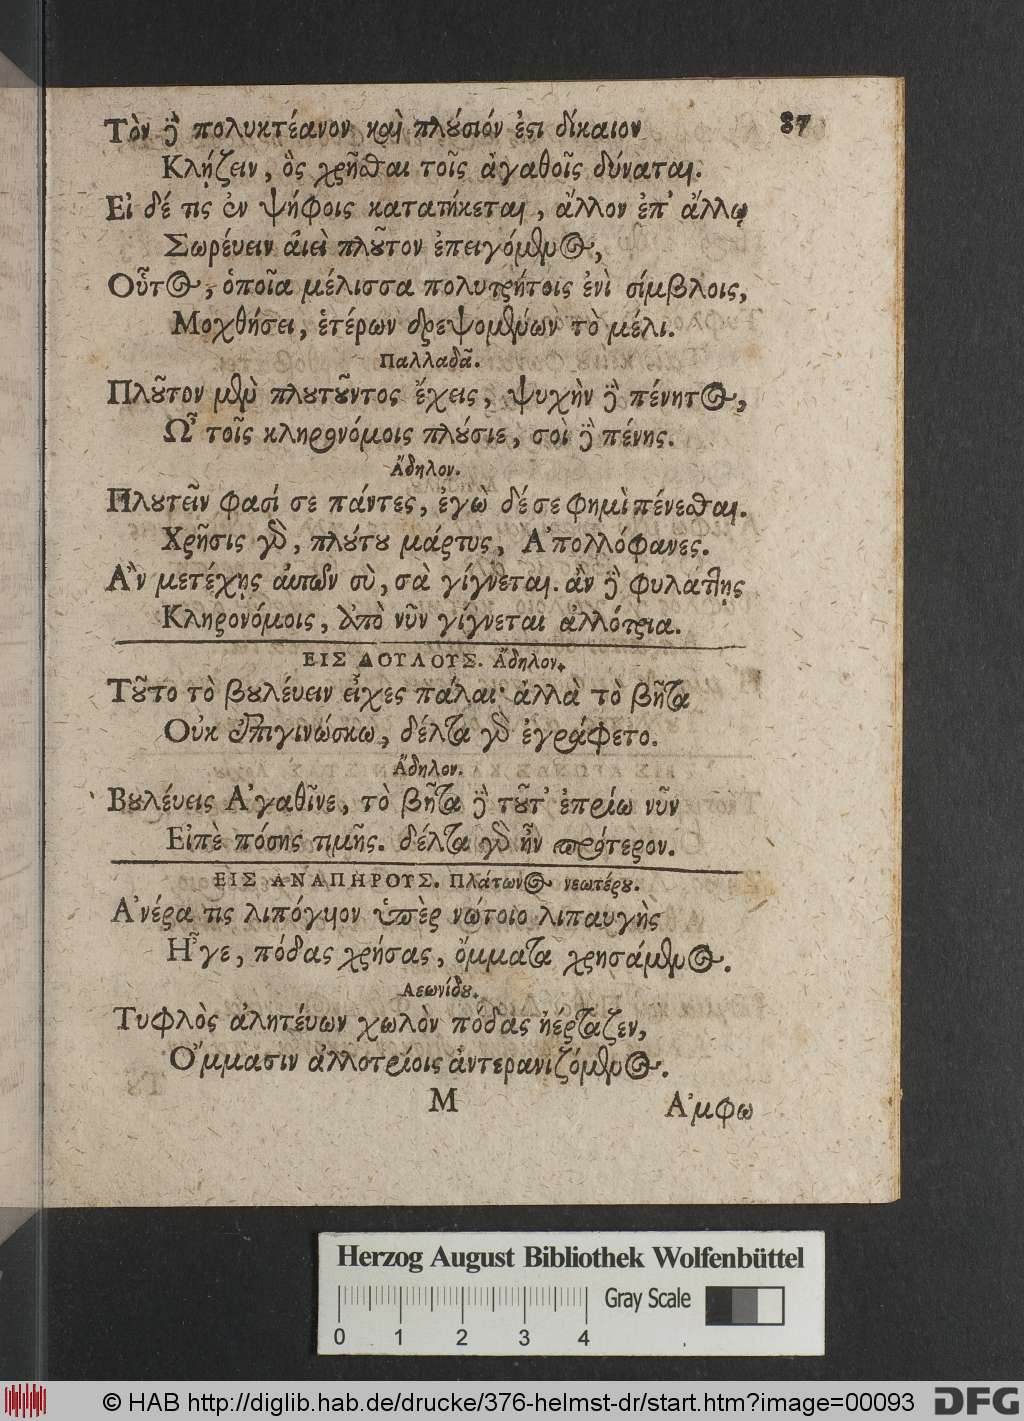 Τὸν δὲ πολυκτέανον καὶ πλούσιόν ἐστι δίκαιον 87
Κλῄζειν, ὃς χρῆσθαι τοῖς ἀγαθοῖς δύναται.
Εἰ δέ τις ἐν ψήφοις κατατήκεται, ἄλλον ἐπ' ἄλλῳ
Σωρεύειν αἰεὶ πλοῦτον ἐπειγόμενος,
Οὗτος, ὁποῖα μέλισσα πολυτρήτοις ἐνὶ σίμβλοις,
Μοχθήσει, ἑτέρων δρεψομένων τὸ μέλι.
Παλλαδᾶ.
Πλοῦτον μὲν πλουτοῦντος ἔχεις, ψυχὴν δὲ πένητος,
Ὦ τοῖς κληρονόμοις πλούσιε, σοὶ δὲ πένης.
Ἄδηλον.
Πλουτεῖν φασί σε πάντες, ἐγὼ δέ σε φημὶ πένεσθαι.
Χρῆσις γὰρ, πλούτου μάρτυς, Ἀπολλόφανες.
Ἂν μετέχῃς αὐτῶν σὺ, σὰ γίγνεται. ἂν δὲ φυλάττῃς
Κληρονόμοις, ἀπὸ νῦν γίγνεται ἀλλότρια.
ΕΙΣ ΔΟΥΛΟΥΣ. Ἄδηλον.
Τοῦτο τὸ βουλεύειν εἶχες πάλαι· ἀλλὰ τὸ βῆτα
Οὐκ ἐπιγινώσκω, δέλτα γὰρ ἐγράφετο.
Ἄδηλον.
Βουλεύεις Ἀγαθῖνε, τὸ βῆτα δὲ τοῦτ' ἐπρίω νῦν
Εἰπὲ πόσης τιμῆς. δέλτα γὰρ ἦν πρότερον.
ΕΙΣ ΑΝΑΠΗΡΟΥΣ. Πλάτωνος νεωτέρου.
Ἀνέρα τις λιπόγυιον ὑπὲρ νώτοιο λιπαυγὴς
Ἦγε, πόδας χρήσας, ὄμματα χρησάμενος.
Λεωνίδου.
Τυφλὸς ἀλητεύων χωλὸν πόδας ἠέρταζεν,
Ὄμμασιν ἀλλοτρίοις ἀντερανιζόμενος.
M Ἄμφω
Herzog August Bibliothek Wolfenbüttel
Gray Scale
0 1 2 3 4
© HAB http://diglib.hab.de/drucke/376-helmst-dr/start.htm?image=00093 DFG